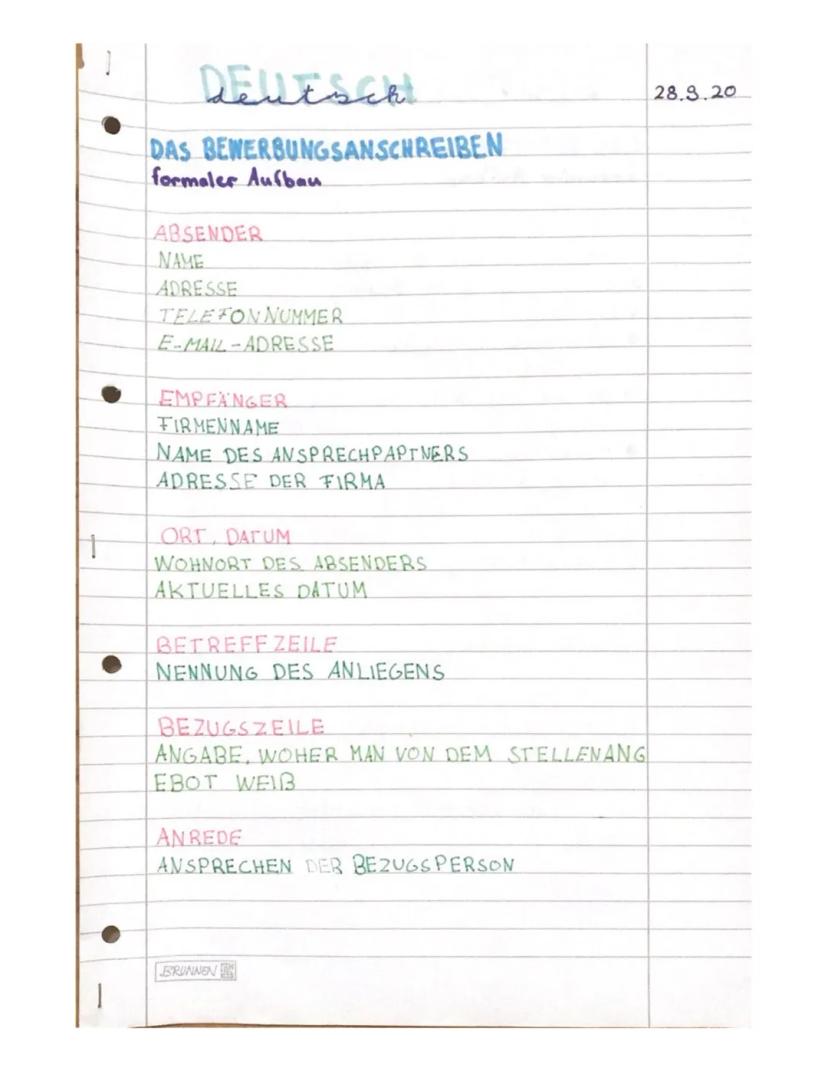 DEUTSCH
deutsch
28.9.20
DAS BEWERBUNGSANSCHREIBEN
formaler Aufbau
ABSENDER
NAME
ADRESSE
TELEFONNUMMER
E-MAIL-ADRESSE
EMPFÄNGER
FIRMENNAME
NAME DES ANSPRECHPARTNERS
ADRESSE DER FIRMA
ORT, DATUM
WOHNORT DES ABSENDERS
AKTUELLES DATUM
BETREFFZEILE
NENNUNG DES ANLIEGENS
BEZUGSZEILE
ANGABE, WOHER MAN VON DEM STELLENANG
EBOT WEIß
ANREDE
ANSPRECHEN DER BEZUGSPERSON
BRUNNEN